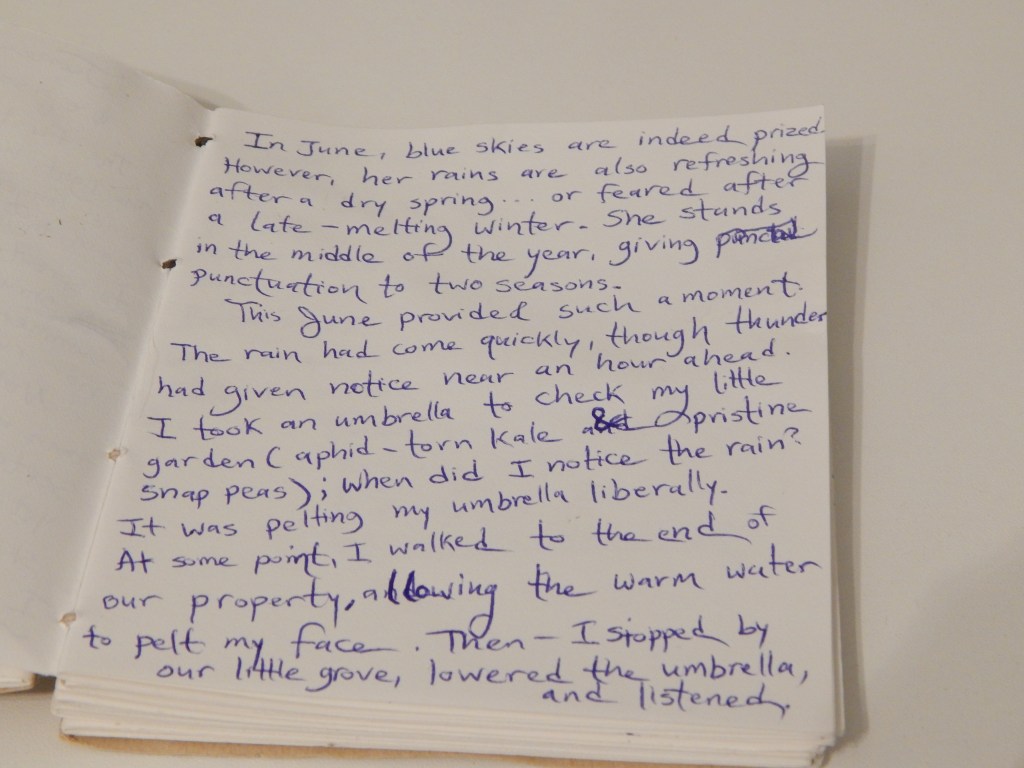 In June, blue skies are indeed prized.
However, her rains are also refreshing
after a dry spring... or feared after
a late-melting winter. She stands
in the middle of the year, giving
punctuation to two seasons.
This June provided such a moment.
The rain had come quickly, though thunder
had given notice near an hour ahead.
I took an umbrella to check my little
garden (aphid-torn kale & pristine
snap peas); when did I notice the rain?
It was pelting my umbrella liberally.
At some point, I walked to the end of
our property, allowing the warm water
to pelt my face. Then - I stopped by
our little grove, lowered the umbrella,
and listened.